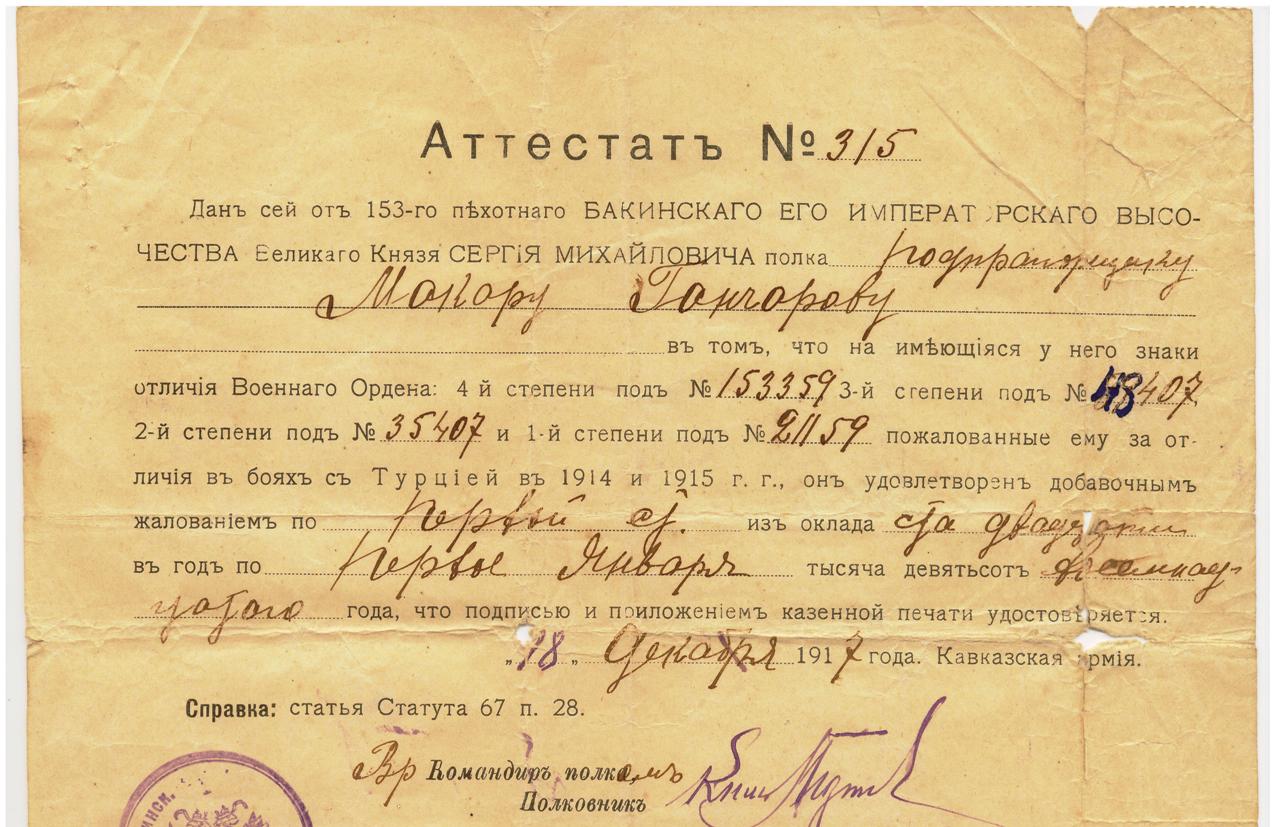 Аттестатъ № 315
Данъ сей отъ 153-го пѣхотнаго БАКИНСКАГО ЕГО ИМПЕРАТОРСКАГО ВЫСО-
ЧЕСТВА Великаго Князя СЕРГІЯ МИХАЙЛОВИЧА полка подпрапорщику
Макару Гончарову
въ томъ, что на имѣющіяся у него знаки
отличія Военнаго Ордена: 4-й степени подъ № 153359 3-й степени подъ № 48407,
2-й степени подъ № 35407 и 1-й степени подъ № 21159 пожалованные ему за от-
личія въ бояхъ съ Турціей въ 1914 и 1915 г. г., онъ удовлетворенъ добавочнымъ
жалованіемъ по первой ст. изъ оклада ста двадцати
въ годъ по первое Января тысяча девятьсотъ восемнад-
цатаго года, что подписью и приложеніемъ казенной печати удостовѣряется.
„18„ Декабря 1917 года. Кавказская армія.
Справка: статья Статута 67 п. 28.
Вр Командиръ полкомъ
Полковникъ
ИНСК.